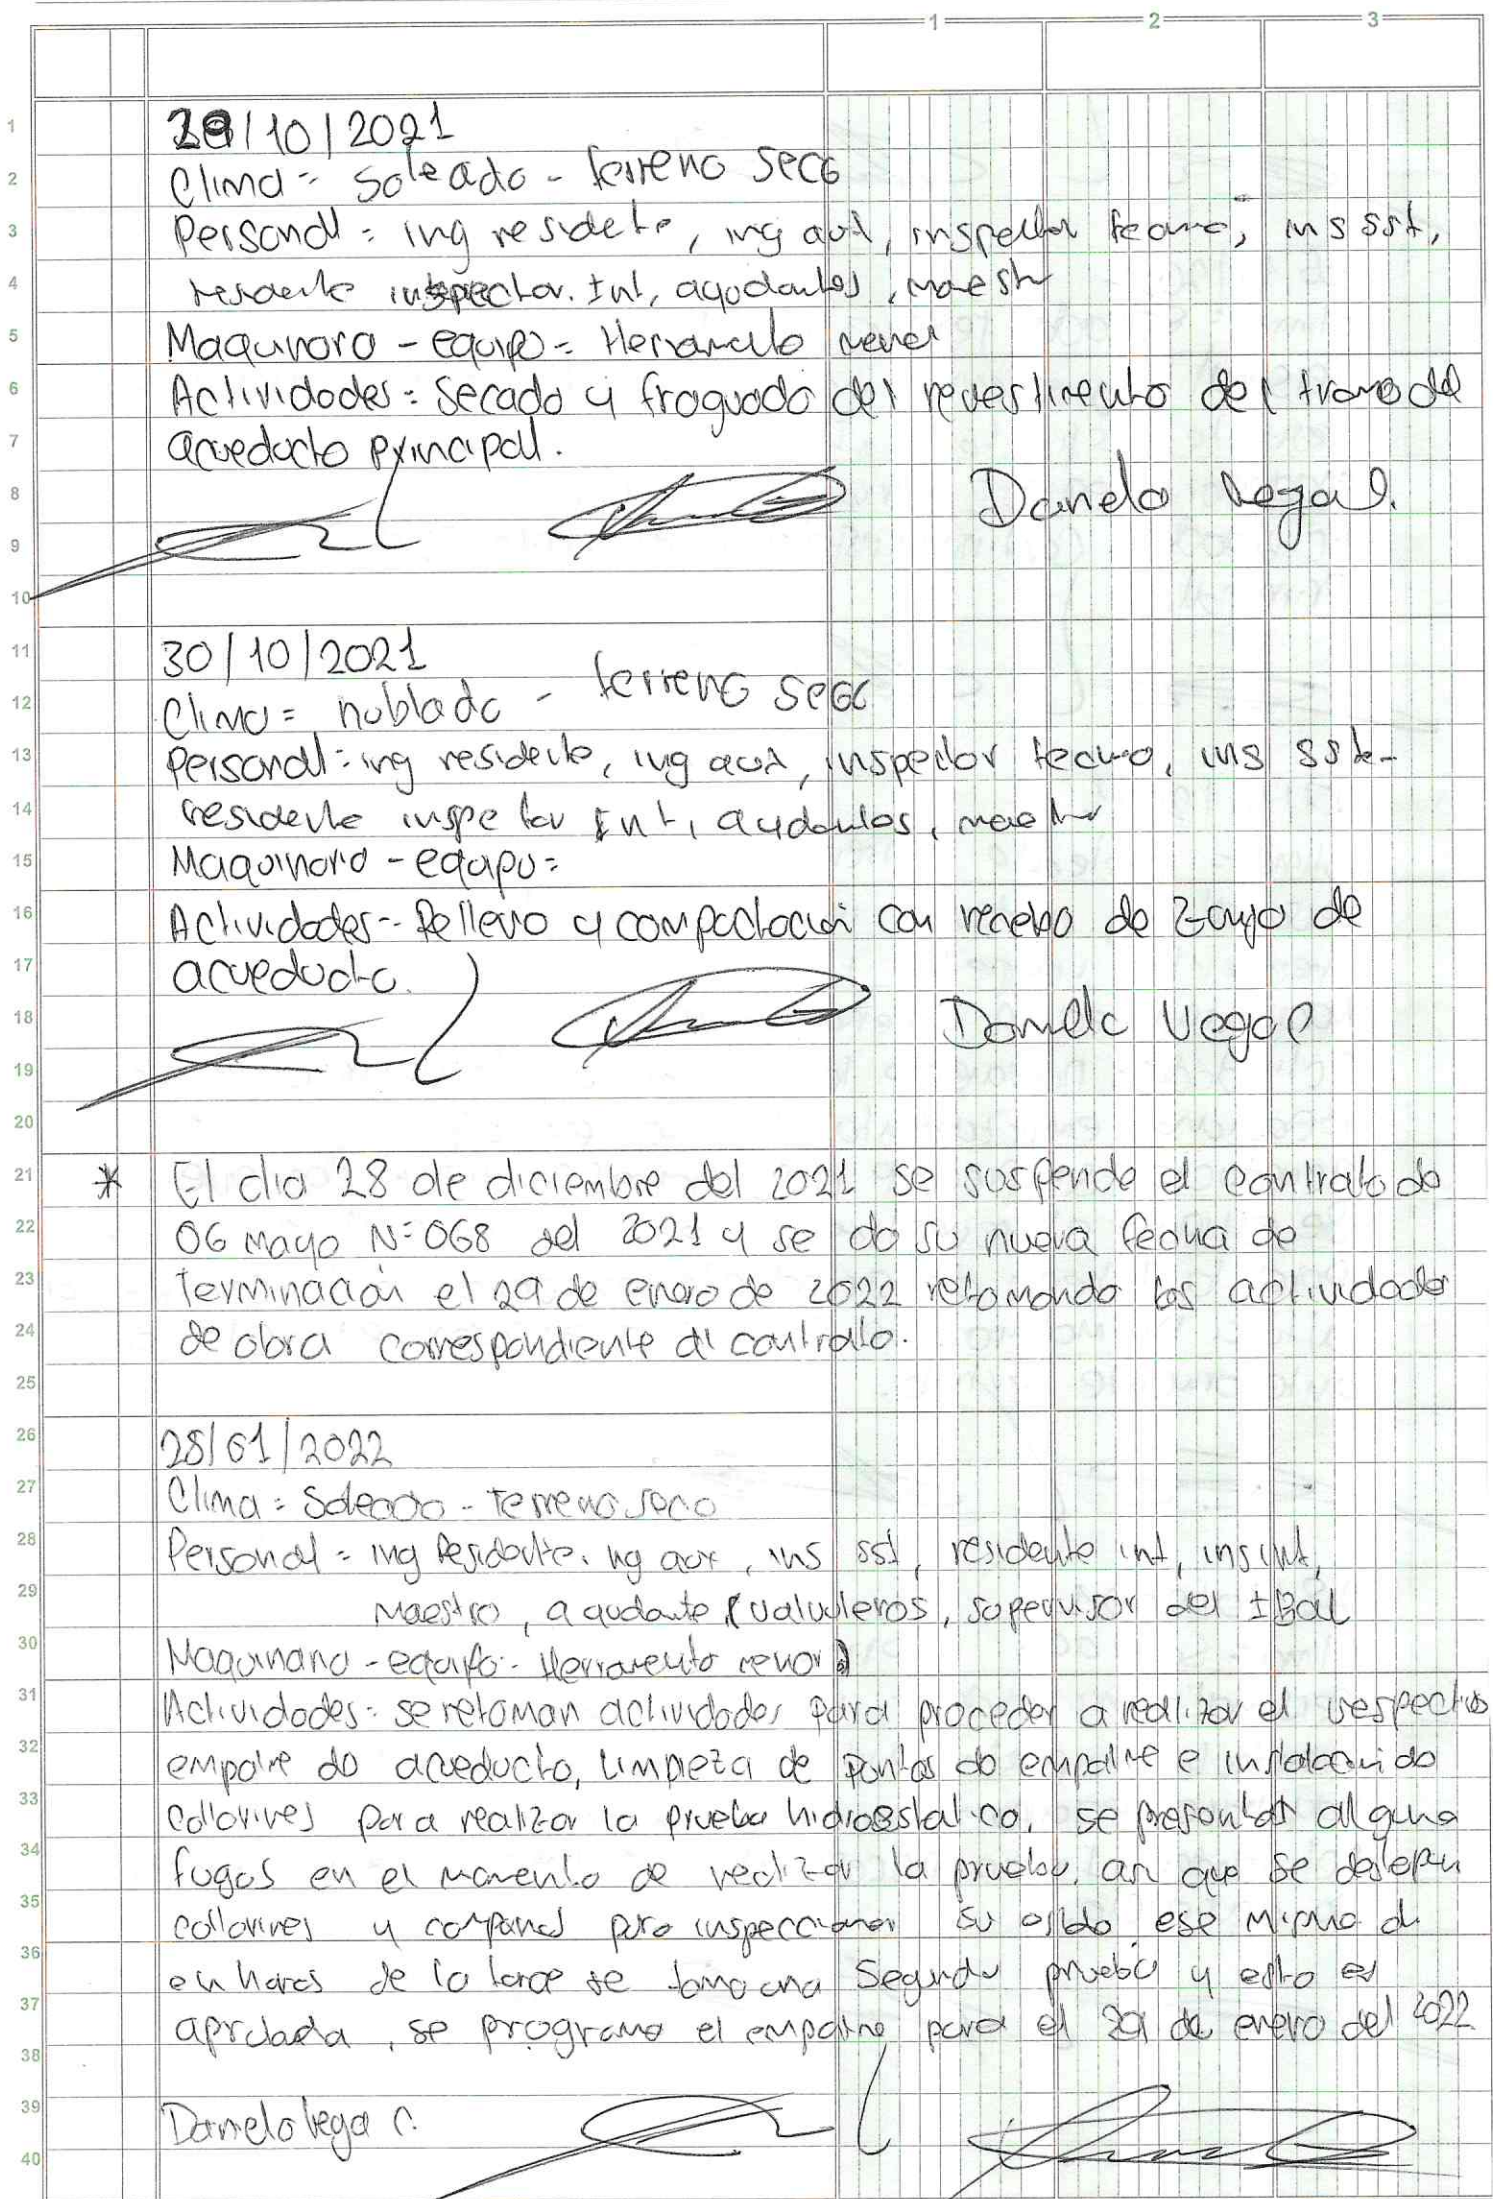 1 2 3
1 29/10/2021
2 Clima = Soleado - terreno seco
3 Personal = ing residete, ing aux, inspector tecno, ins sst,
4 residente inspector. Int, ayudantes, maestr
5 Maquinara - equipo = Herramieta menor
6 Actividades = Secado y fraguado del revestimento del tramo del
7 acueducto principal.
8 Danela Vega C.
9
10
11 30/10/2021
12 Clima = nublado - terreno seco
13 Personal = ing residente, ing aux, inspector tecno, ins sst -
14 residente inspetor Int, ayudantes, maestr
15 Maquinara - equipo =
16 Actividades - Relleno y compactación con recebo de zanja de
17 acueducto.
18 Daniela Vega C
19
20
21 * El dia 28 de diciembre del 2021 se suspende el contrato de
22 06 Mayo N° 068 del 2021 y se da su nueva fecha de
23 Terminación el 29 de enero de 2022 retomando las actividades
24 de obra correspondiente al contrato.
25
26 28/01/2022
27 Clima = Soleado - Terreno seco
28 Personal = ing Residente, ing aux, ins sst, residente int, ins int,
29 Maestro, ayudante, valvuleros, supervisor del IBAL
30 Maquinaria - equipo - Herramienta menor
31 Actividades - se retoman actividades para proceder a realizar el respectivo
32 empalme de acueducto, limpieza de puntas de empalme e instalación de
33 collarines para realizar la prueba hidroestatica, se presentas alguna
34 fugas en el momento de realizar la prueba, asi que se destapa
35 collarines y campanas para inspeccionar su estado, ese mismo di
36 en horas de la tarde se toma una Segunda prueba y esta es
37 aprobada, se programa el empalme para el 29 de enero del 2022
38
39 Daniela Vega C.
40